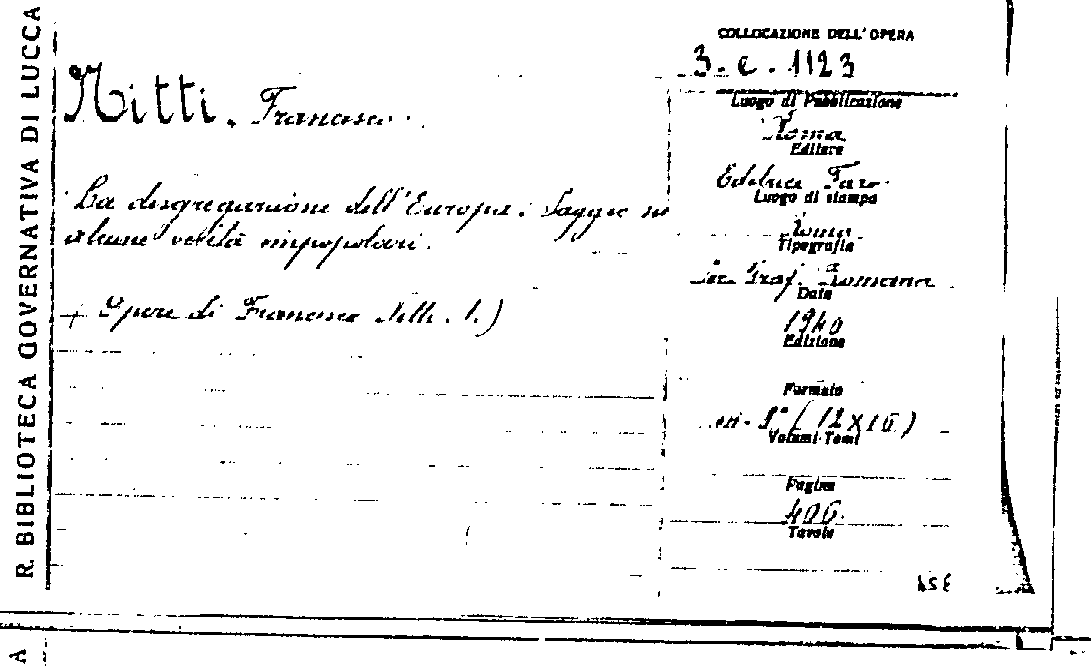 R. BIBLIOTECA GOVERNATIVA DI LUCCA
Nitti. Francesco.
La disgregazione dell'Europa. Saggio su
alcune verità impopolari.
(Opere di Francesco Nitti. 1.)
COLLOCAZIONE DELL'OPERA
3. c. 1123
Luogo di Pubblicazione
Roma
Editore
Editrice Faro
Luogo di stampa
Roma
Tipografia
Graf. Romana
Data
1940
Edizione
Formato
in-8° (12X16)
Volumi-Tomi
Pagine
406.
Tavole
A